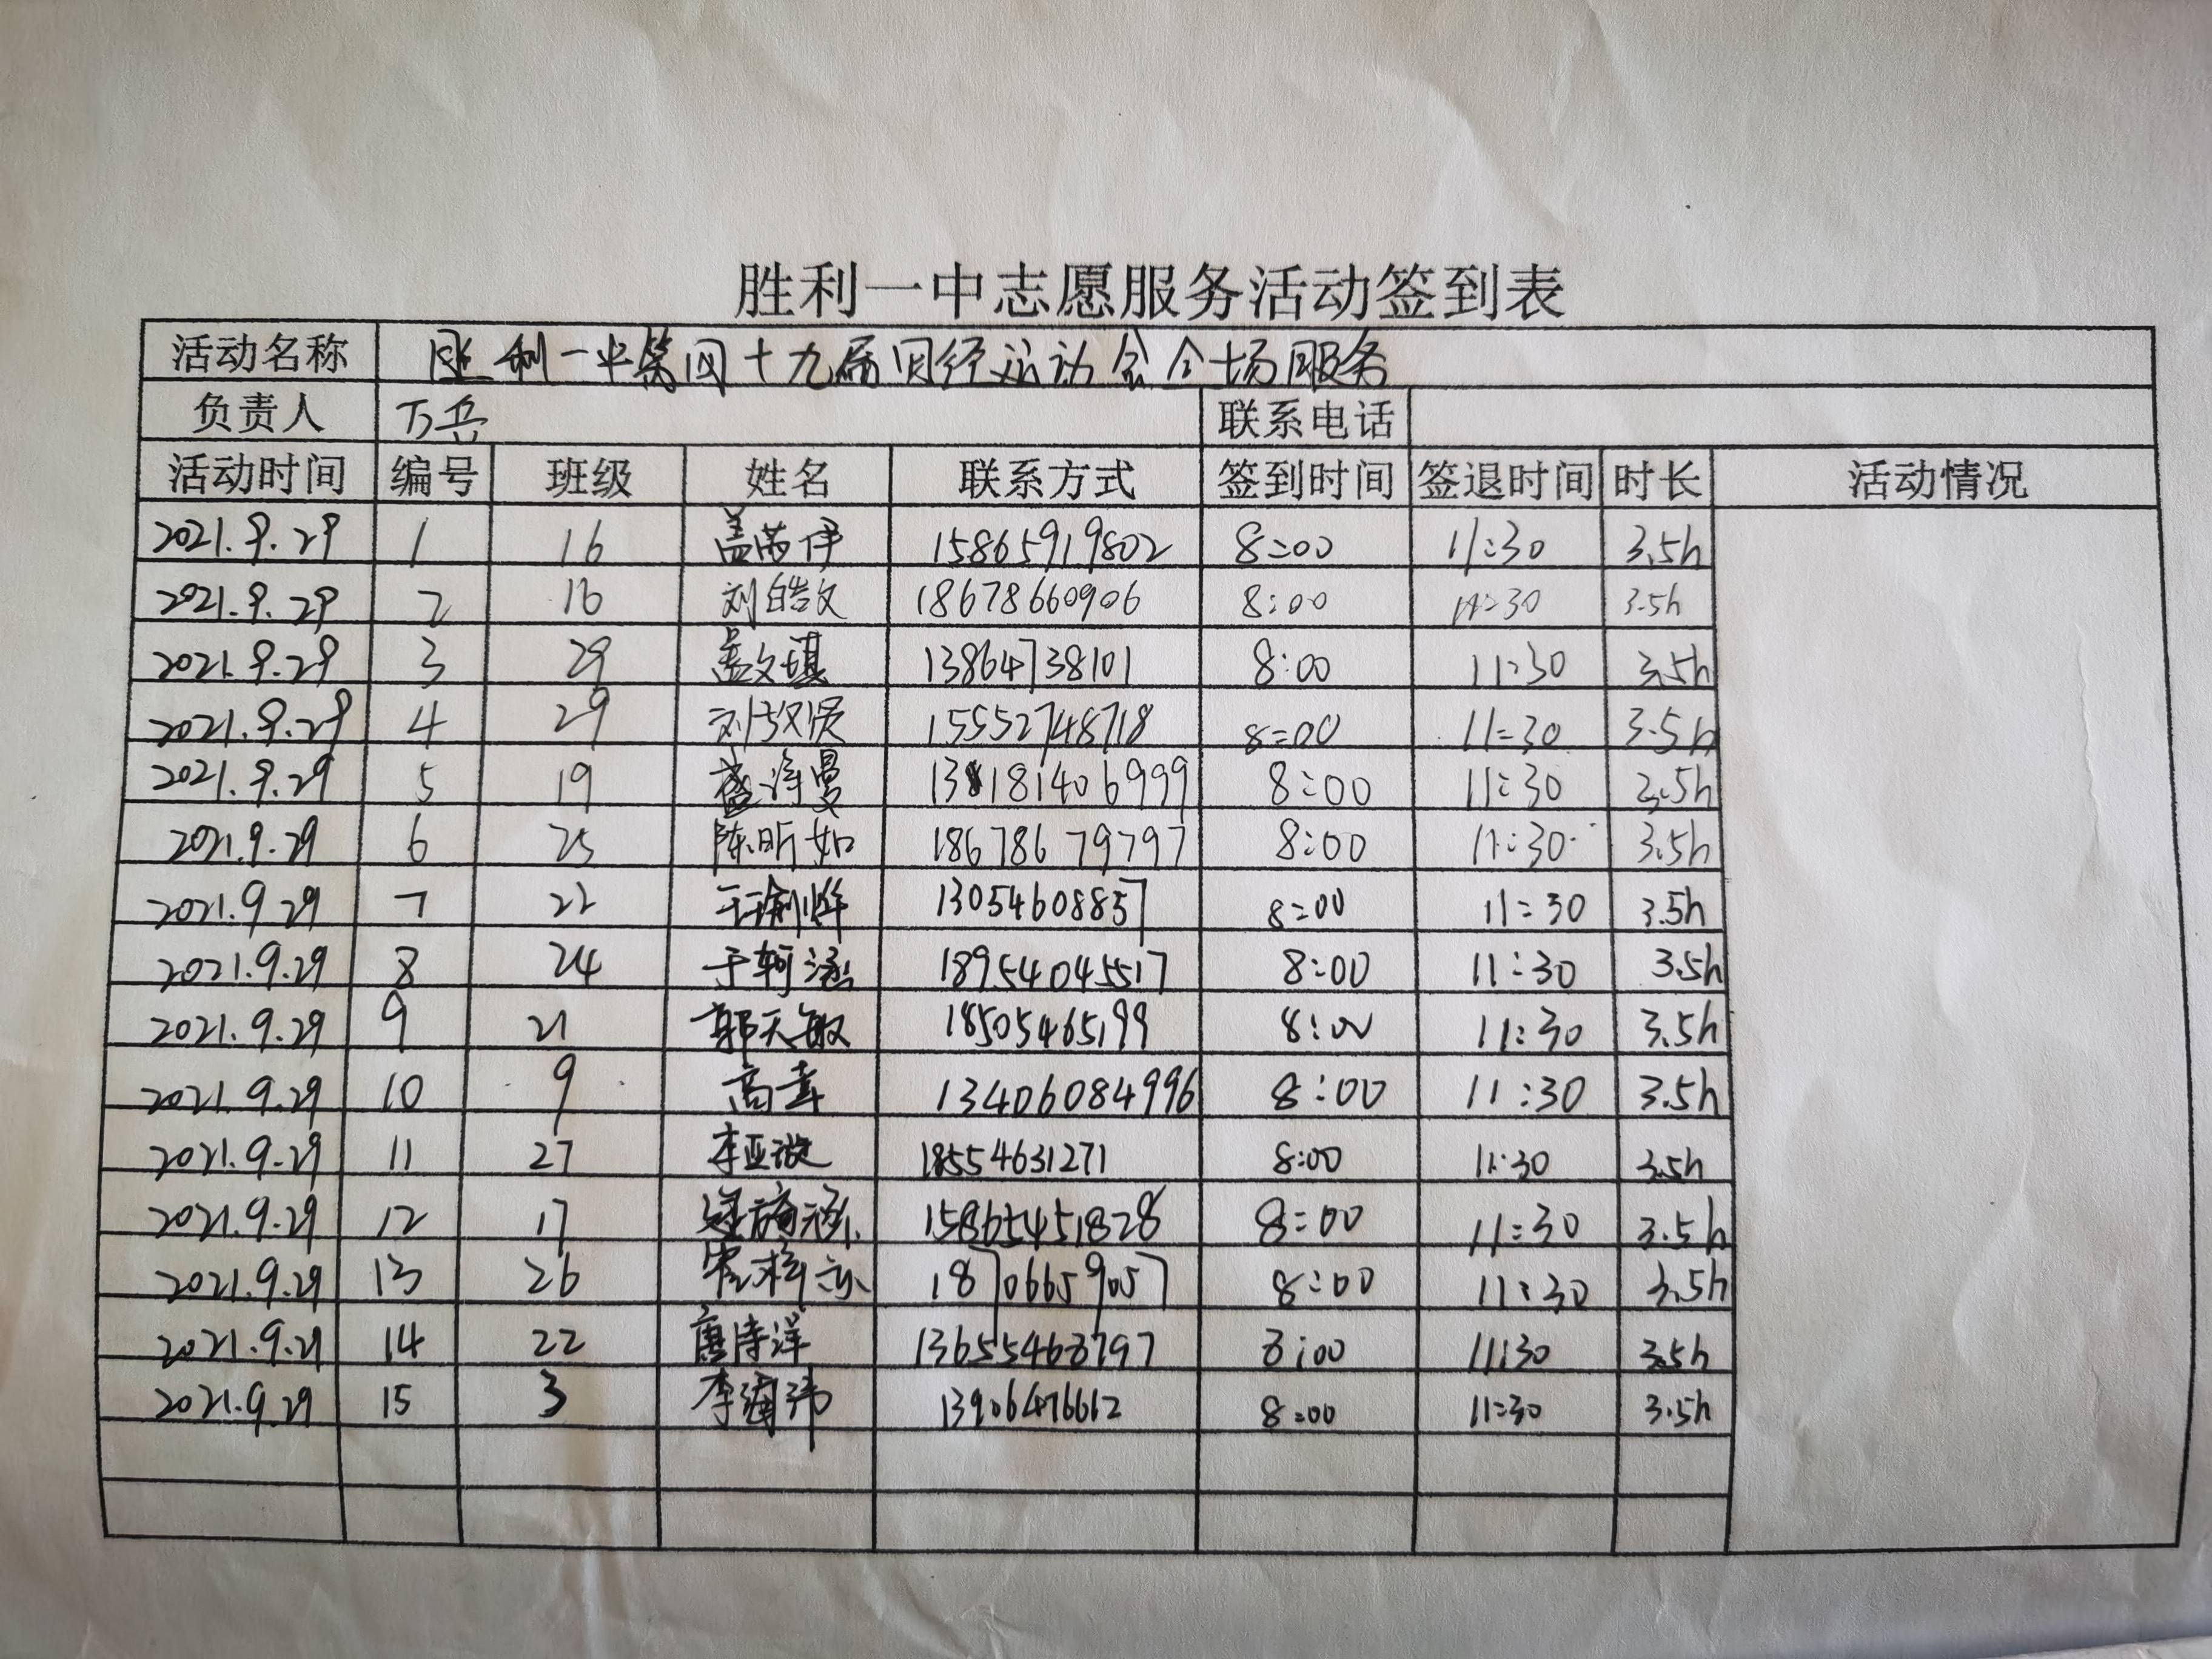 胜利一中志愿服务活动签到表
活动名称 胜利一中第四十九届田径运动会全场服务
负责人 万兵 联系电话
活动时间 编号 班级 姓名 联系方式 签到时间 签退时间 时长 活动情况
2021.9.29 1 16 盖芮伊 15865919802 8:00 11:30 3.5h
2021.9.29 2 16 刘皓文 18678660906 8:00 11:30 3.5h
2021.9.29 3 29 13864738101 8:00 11:30 3.5h
2021.9.29 4 29 15552748718 8:00 11:30 3.5h
2021.9.29 5 19 8:00 11:30 3.5h
2021.9.29 6 25 陈昕如 18678679797 8:00 11:30 3.5h
2021.9.29 7 22 13054608857 8:00 11:30 3.5h
2021.9.29 8 24 于轲涵 18954045517 8:00 11:30 3.5h
2021.9.29 9 21 郭天敏 18505465199 8:00 11:30 3.5h
2021.9.29 10 9 13406084996 8:00 11:30 3.5h
2021.9.29 11 27 18554631271 8:00 11:30 3.5h
2021.9.29 12 17 15865451828 8:00 11:30 3.5h
2021.9.29 13 26 18706659057 8:00 11:30 3.5h
2021.9.29 14 22 唐诗洋 13655468797 8:00 11:30 3.5h
2021.9.29 15 3 13906476612 8:00 11:30 3.5h